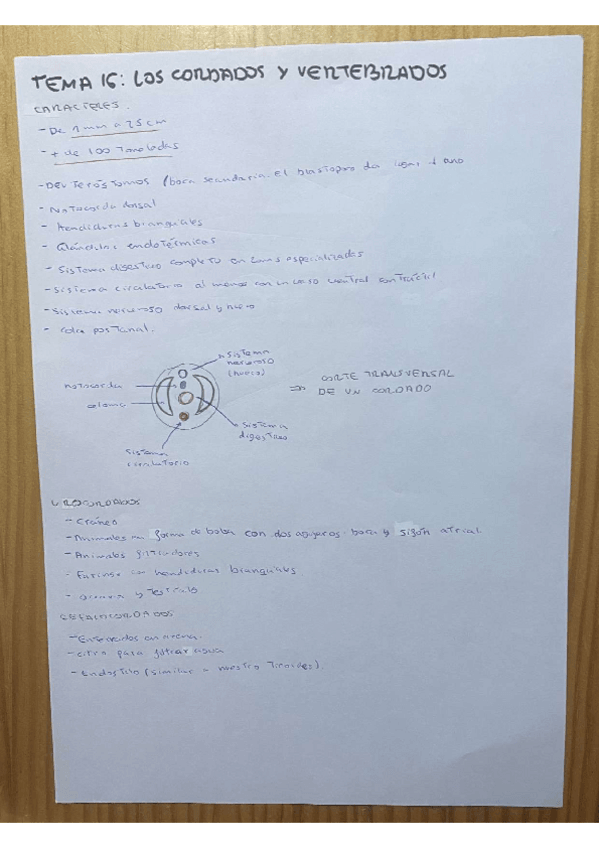 TEMA 16: LOS CORDADOS Y VERTEBRADOS
CARACTERES.
- De 1mm a 25cm
- + de 100 Toneladas
- DEUTERÓSTOMOS (boca secundaria. El blastoporo da lugar ano
- Notocorda dorsal
- Hendiduras branquiales
- Glándulas endotérmicas
- Sistema digestivo completo con zonas especializadas
- Sistema circulatorio al menos con un vaso ventral contráctil
- Sistema nervioso dorsal y hueco
- cola postanal.
Sistema nervioso (hueco)
notocorda
celoma
Sistema digestivo
Sistema circulatorio
⇒ CORTE TRANSVERSAL DE UN CORDADO
UROCORDADOS
- Cráneo
- Animales en forma de bolsa con dos agujeros: boca y sifón atrial.
- Animales filtradores
- Faringe con hendiduras branquiales
- y Testículo
CEFALOCORDADOS
- Enterrados en arena.
- cirro para filtrar agua
- Endostilo (similar a nuestro Tiroides).